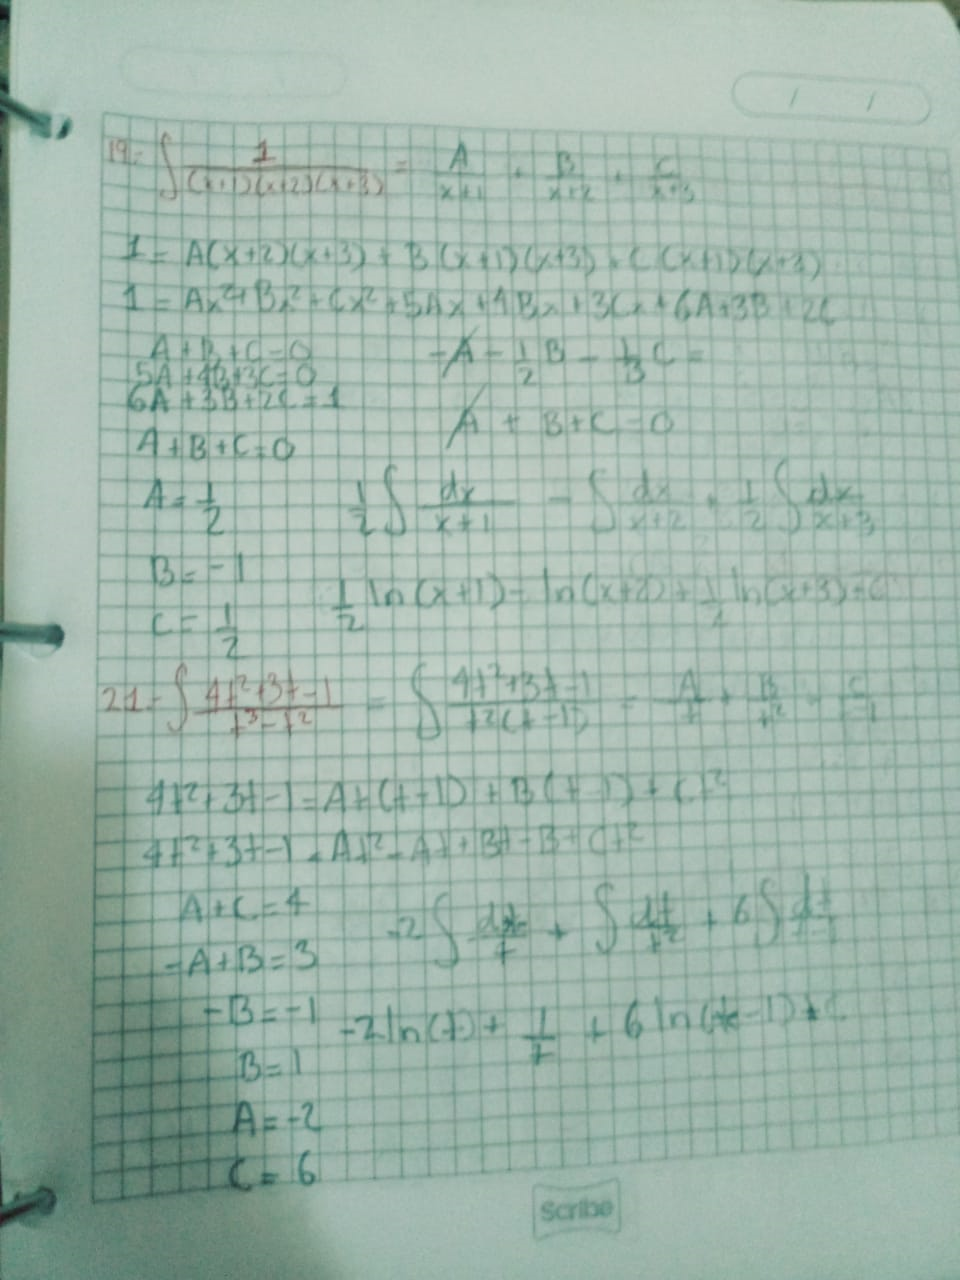 19- ∫ 1/((x+1)(x+2)(x+3)) = A/(x+1) + B/(x+2) + C/(x+3)
1 = A(x+2)(x+3) + B(x+1)(x+3) + C(x+1)(x+3)
1 = Ax²+Bx²+Cx²+5Ax+4Bx+3Cx+6A+3B+2C
A+B+C=0   -A - 1/2 B - 1/3 C =
5A+4B+3C=0
6A+3B+2C=1   A + B+C=0
A+B+C=0
A= 1/2   1/2 ∫ dx/(x+1) - ∫ dx/(x+2) + 1/2 ∫ dx/(x+3)
B= -1   1/2 ln(x+1) - ln(x+2) + 1/2 ln(x+3)+C
C= 1/2
21- ∫ (4t²+3t-1)/(t³-t²) = ∫ (4t²+3t-1)/(t²(t-1)) = A/t + B/t² + C/(t-1)
4t²+3t-1=At(t-1)+B(t-1)+Ct²
4t²+3t-1=At²-At+Bt-B+Ct²
A+C=4   -2∫ dt/t + ∫ dt/t² + 6∫ dt/(t-1)
-A+B=3
-B=-1   -2ln(t)+ 1/t + 6ln(t-1)+C
B=1
A=-2
C=6
Scribe